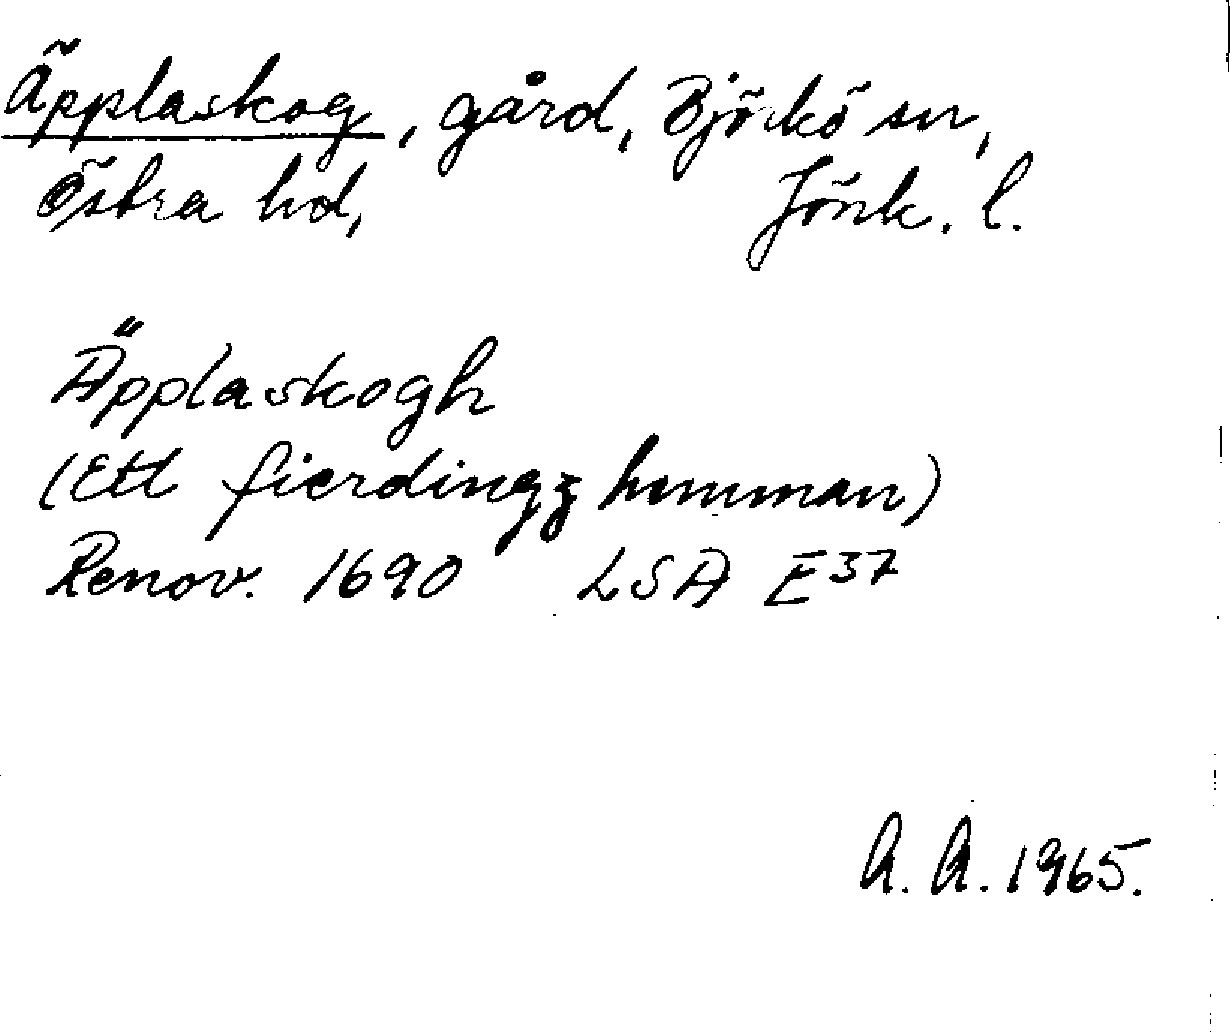 Äpplaskog, gård, Björkö sn,
Östra hd, Jönk. l.
Äpplaskogh
(Ett fierdingz hemman)
Renov. 1690 LSA E37
A. A. 1965.